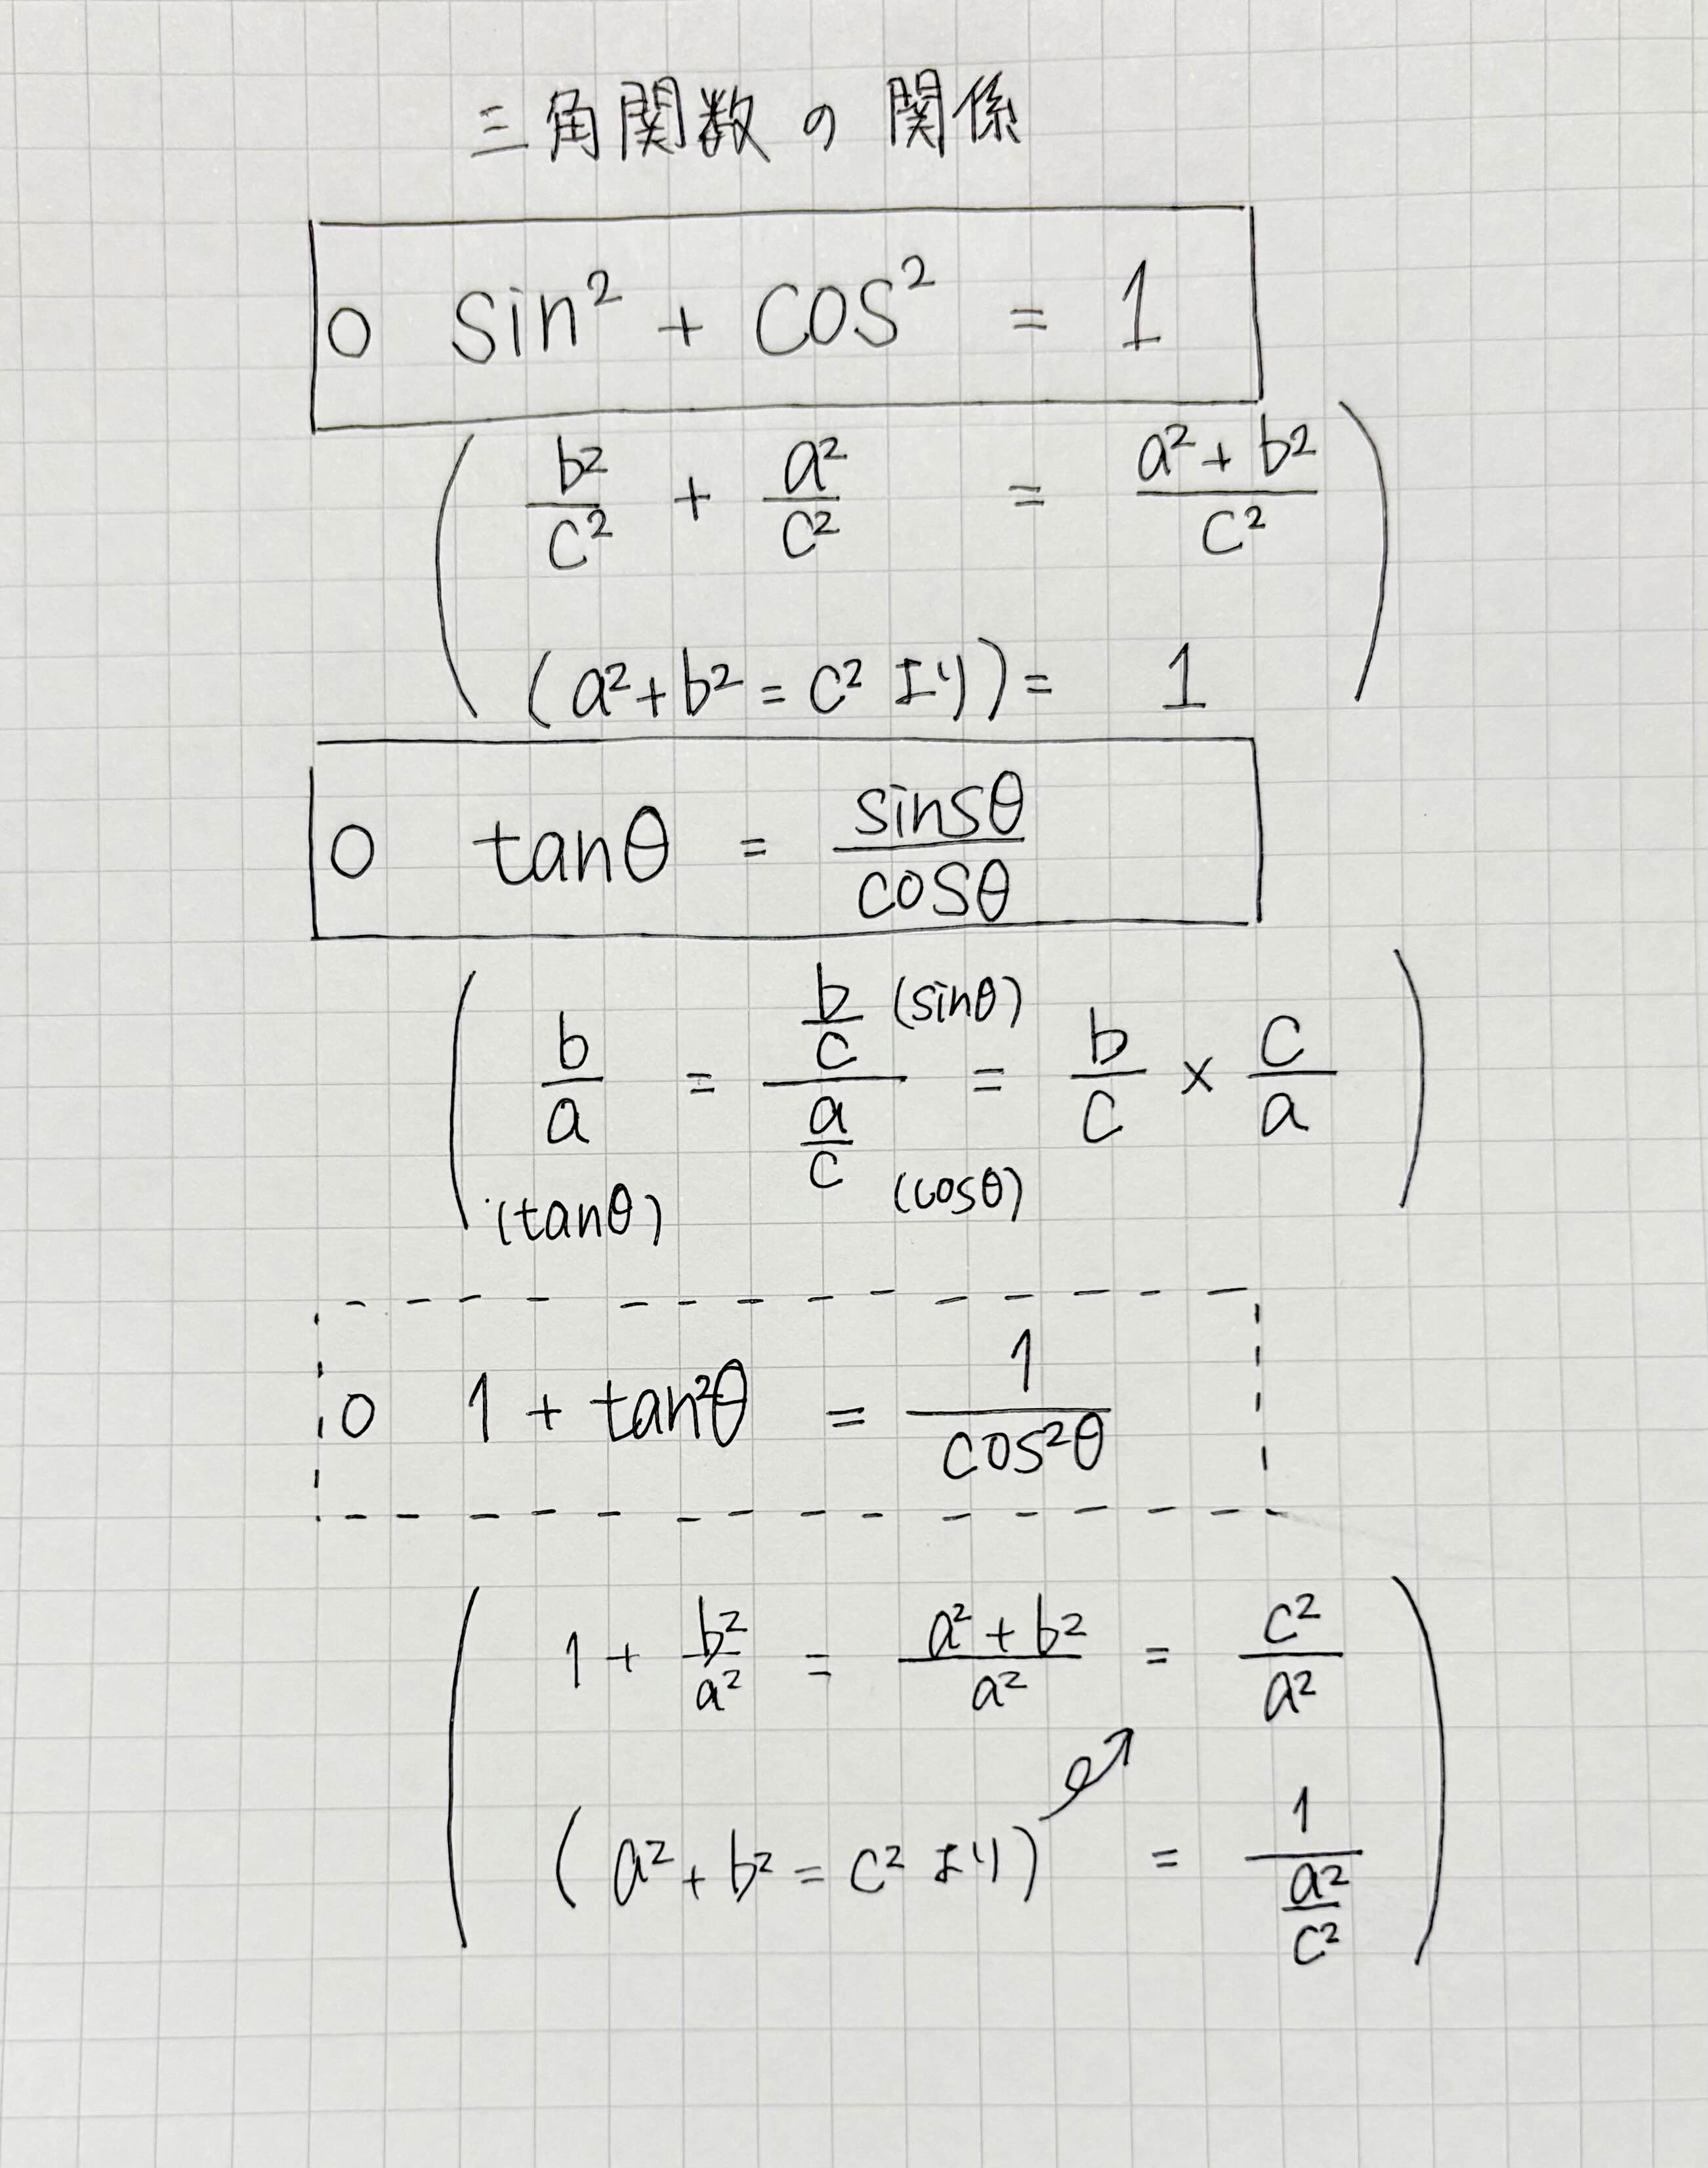 三角関数の関係
○ sin² + cos² = 1
( b²/c² + a²/c² = (a² + b²)/c²
(a²+b² = c² より) = 1 )
○ tanθ = sinsθ/cosθ
( b/a (tanθ) = (b/c (sinθ))/(a/c (cosθ)) = b/c × c/a )
○ 1 + tan²θ = 1/cos²θ
( 1 + b²/a² = (a² + b²)/a² = c²/a²
(a² + b² = c² より) = 1/(a²/c²) )